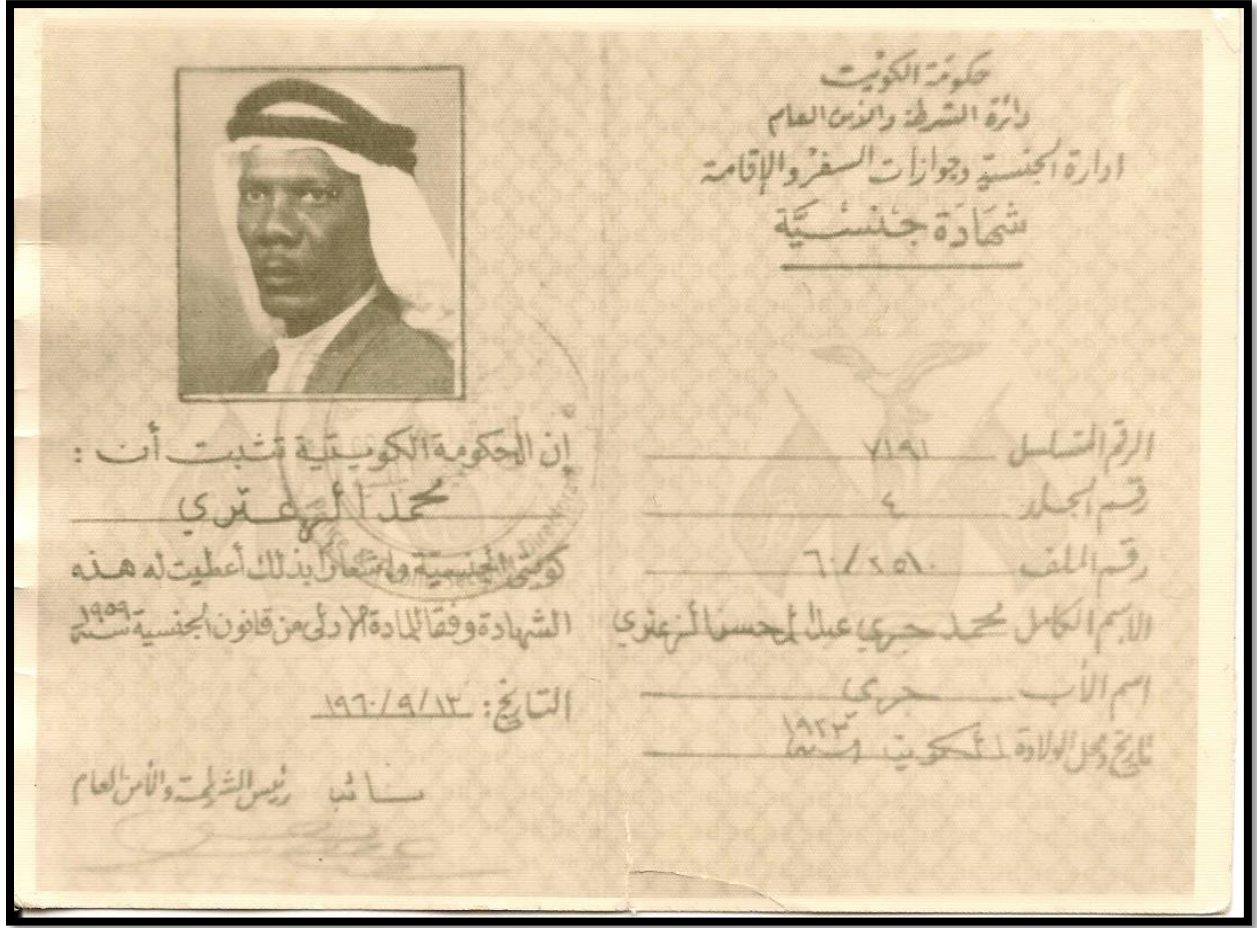 حكومة الكويت
دائرة الشرطة والأمن العام
ادارة الجنسية وجوازات السفر والإقامة
شهادة جنسية
الرقم المتسلسل ٧١٩١
رقم الجلد ٤
رقم الملف ٦٠/٢٥١٠
الاسم الكامل محمد جري حسن العنزي
اسم الأب جري
تاريخ ومحل الولادة الكويت سنة ١٩٢٣
إن الحكومة الكويتية تثبت أن :
محمد
كويتي الجنسية واشعارا بذلك أعطيت له هذه
الشهادة وفقا للمادة الاولى من قانون الجنسية سنة ١٩٥٩
التاريخ : ١٩٦٠/٩/١٢
نائب رئيس الشرطة والأمن العام